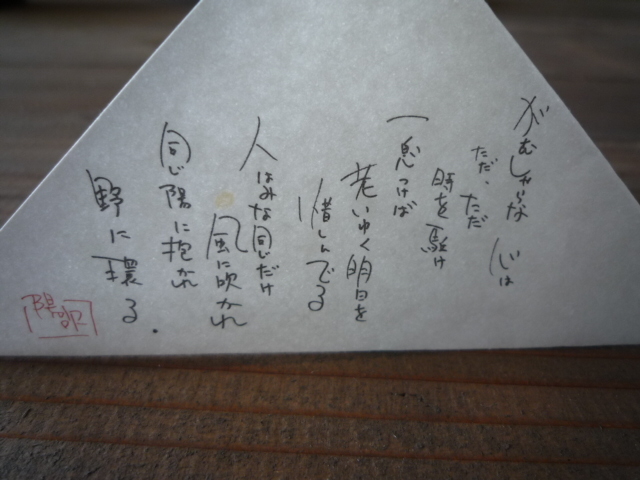 がむしゃらな 心は
ただ、ただ
時を 駆け
一息つけば
老いゆく明日を
惜しんでる
人はみな同じだけ
風に吹かれ
同じ陽に抱かれ
野に環る.